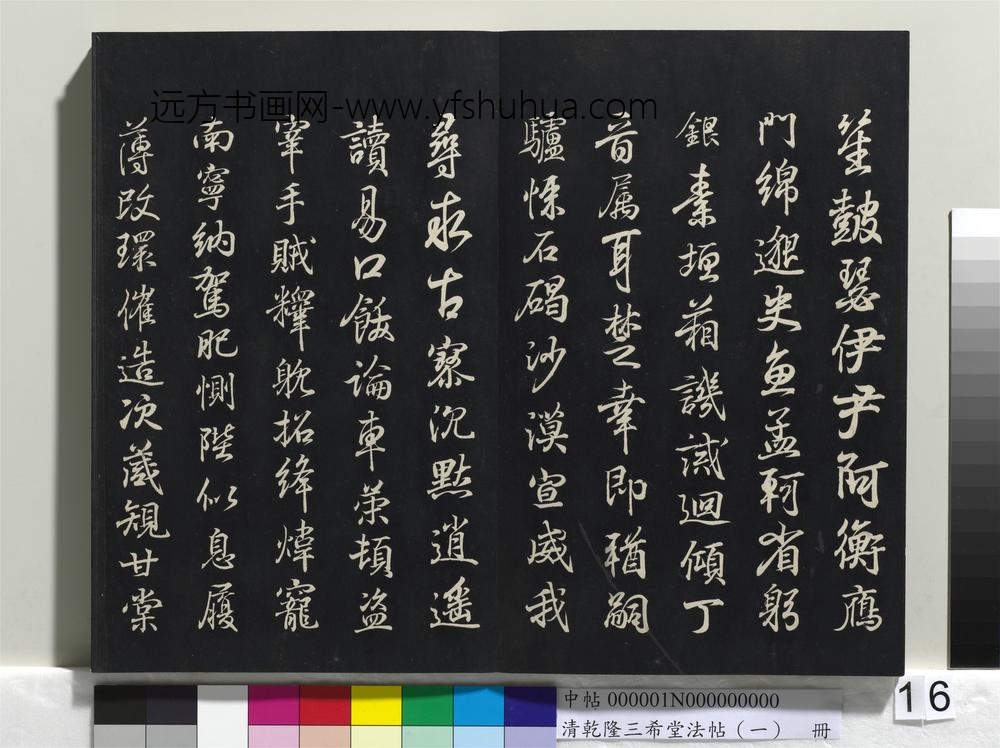 远方书画网-www.yfshuhua.com
笙鼓瑟伊尹阿衡鴈
門綿邈史魚孟軻省躬
銀素垣葙譏誡迴傾丁
首属耳楚幸即猶嗣
驢悚石碣沙漠宣威我
尋求古寮沉默逍遥
讀易口飫論車策頓盗
宰手賊釋躭招絳煒寵
南寧納駕肥惻陛似息履
薄改環催造次葴規甘棠
16
中帖 000001N000000000
清乾隆三希堂法帖（一） 冊